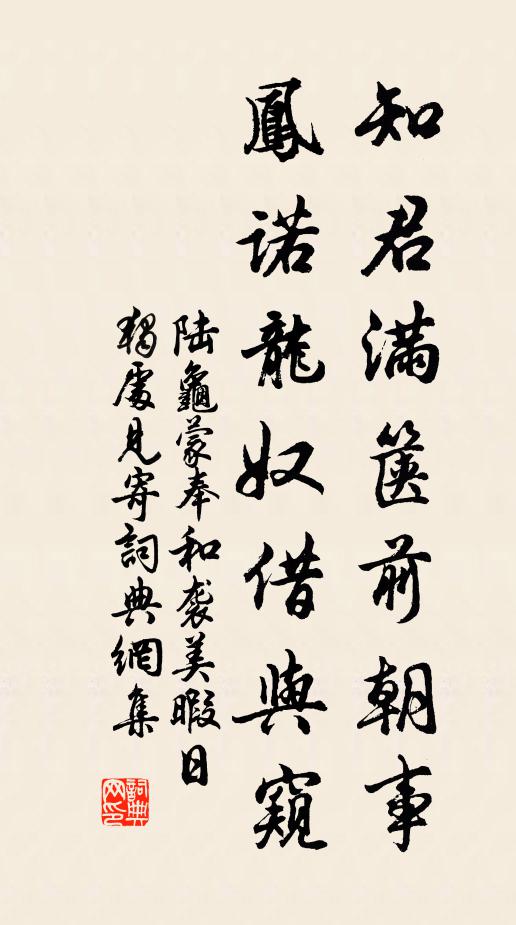 知君滿篋前朝事
鳳諾龍奴借與窺
陆龜蒙奉和袭美暇日
獨處見寄詞典網集
詞典
网印